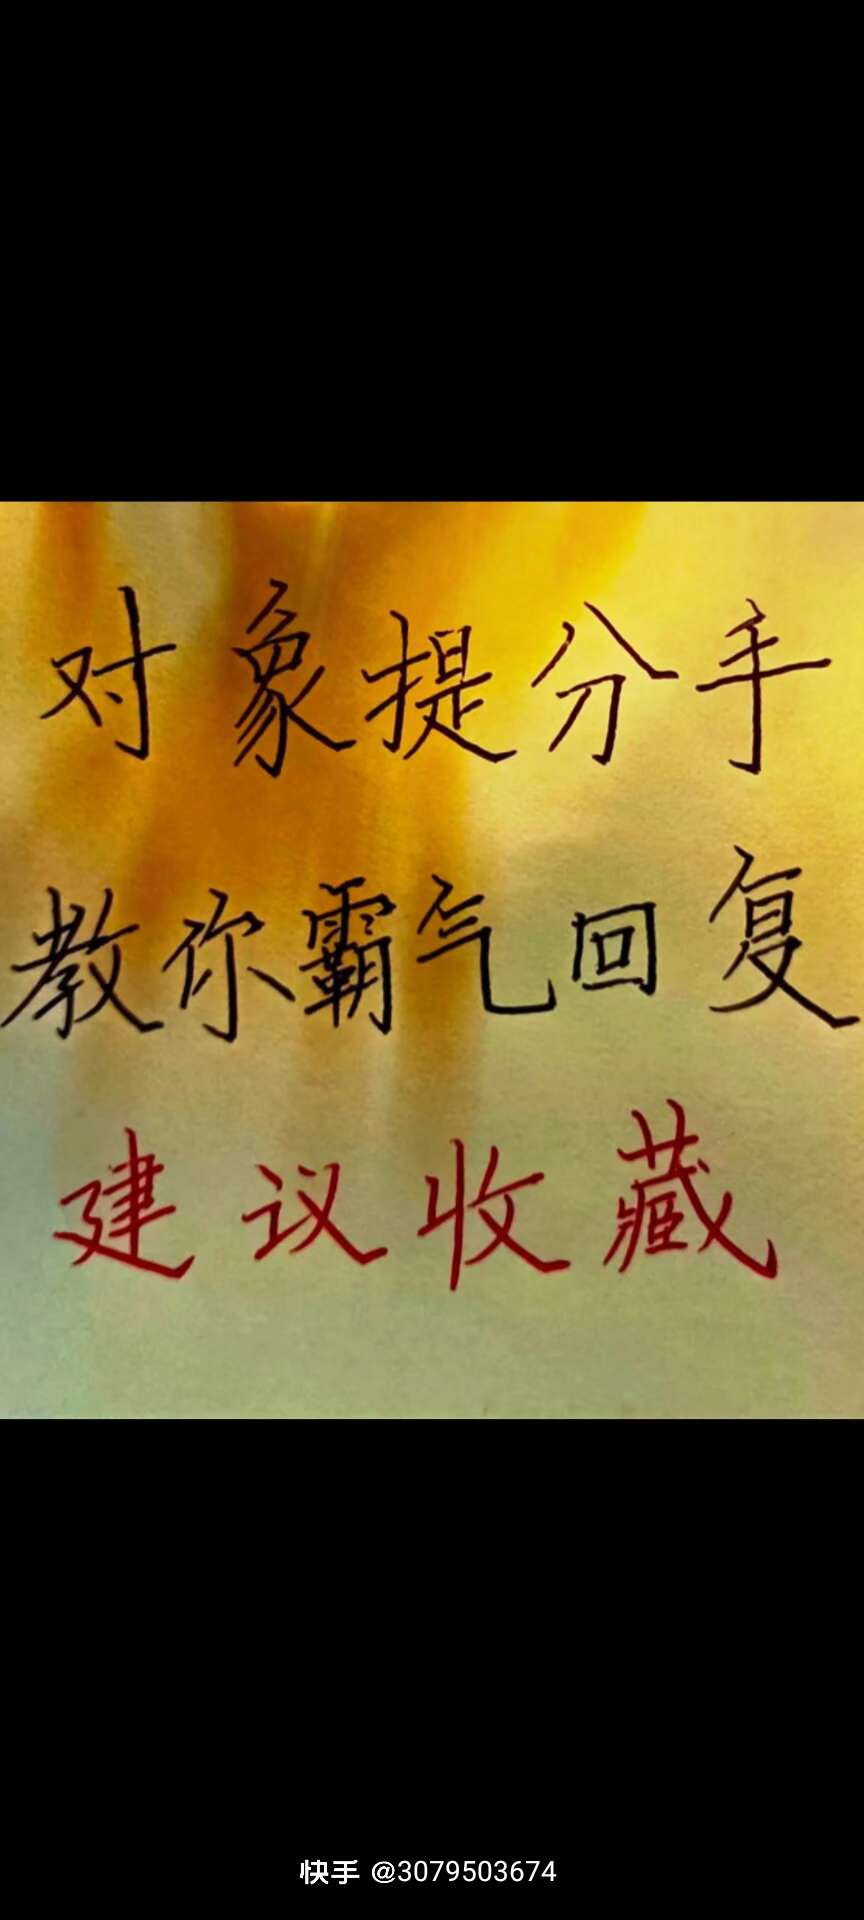 对象提分手
教你霸气回复
建议收藏
快手 @3079503674